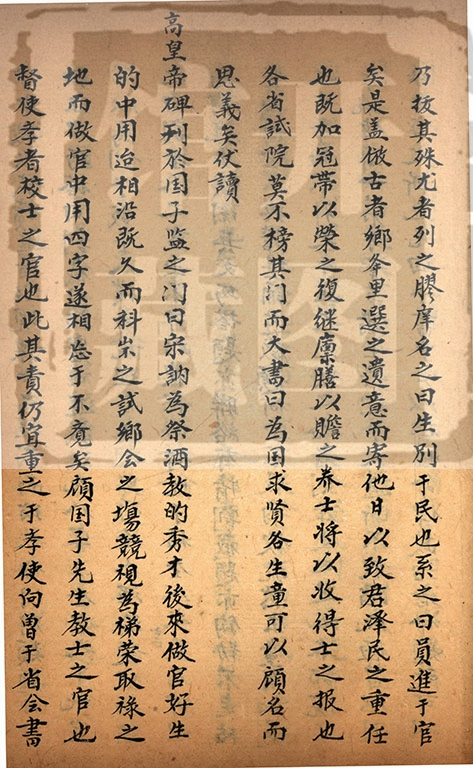 乃拔其殊尤者列之膠庠名之曰生別于民也系之曰員進于官
矣是盖倣古者鄉舉里選之遺意而寄他日以致君澤民之重任
也既加冠帶以榮之復继廪膳以贍之养士将以收得士之报也
各省試院莫不榜其门而大書曰為国求賢各生童可以顧名而
思義矣伏讀
高皇帝碑刊於国子监之门曰宋訥為祭酒教的秀才後來做官好生
的中用迨相沿既久而科岁之試鄉会之塲競視為梯荣取禄之
地而做官中用四字遂相忘于不竟矣顧国子先生教士之官也
督使孝者校士之官也此其責仍宜重之于孝使向曽于省会書